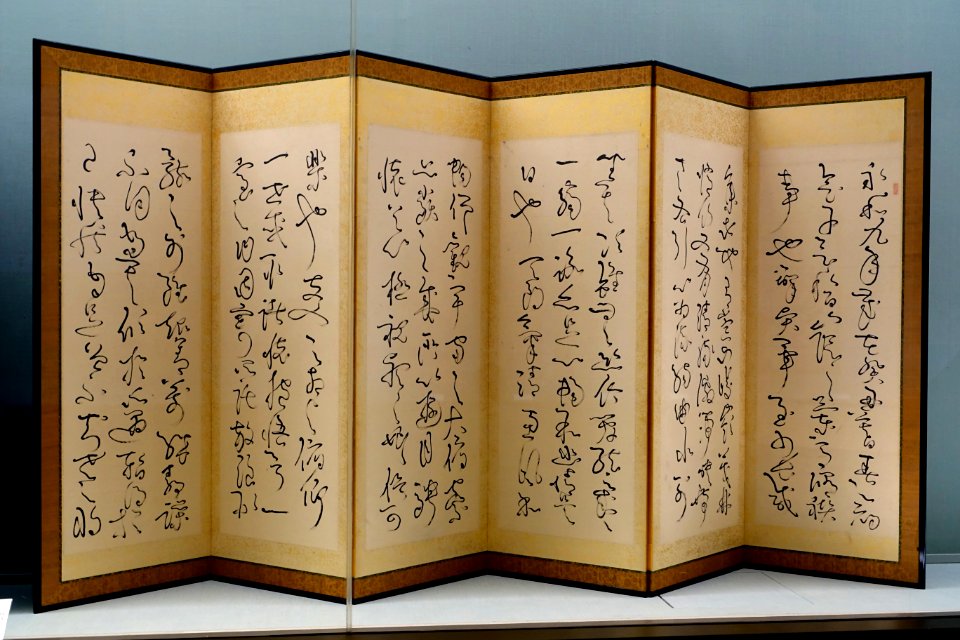 永和九年歳在癸丑暮春之初
會于會稽山陰之蘭亭脩禊
事也群賢畢至少長咸
集此地有崇山峻領茂林
脩竹又有清流激湍映帶
左右引以為流觴曲水列
坐其次雖無絲竹管弦之盛
一觴一詠亦足以暢叙幽情是
日也天朗氣清惠風和
暢仰觀宇宙之大俯察
品類之盛所以遊目騁
懷足以極視聽之娯信可
樂也夫人之相與俯仰
一世或取諸懷抱悟言一
室之内或因寄所託放浪形
骸之外雖趣舎萬殊静躁
不同當其欣於所遇暫得於
己快然自足曾不知老之將